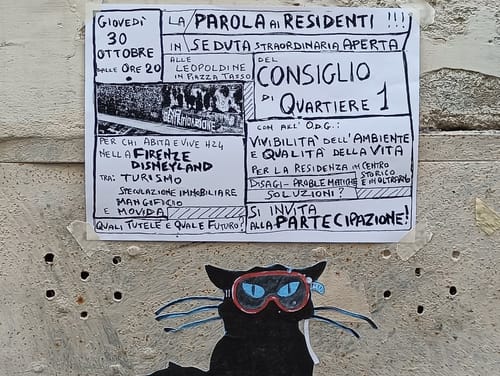 GIOVEDÌ
30
OTTOBRE
DALLE ORE 20
LA PAROLA AI RESIDENTI !!!
IN SEDUTA STRAORDINARIA APERTA
ALLE
LEOPOLDINE
IN PIAZZA TASSO
DEL
CONSIGLIO
DI QUARTIERE 1
PER CHI ABITA E VIVE H24
NELLA FIRENZE
DISNEYLAND
TRA: TURISMO
SPECULAZIONE IMMOBILIARE
MANGIFICIO
E MOVIDA
QUALI TUTELE E QUALE FUTURO?
CON ALL' O.D.G.:
VIVIBILITÀ DELL'AMBIENTE
E QUALITÀ DELLA VITA
PER LA RESIDENZA IN CENTRO
STORICO
E IN OLTRARNO
DISAGI - PROBLEMATICHE
SOLUZIONI?
SI INVITA
ALLA PARTECIPAZIONE!